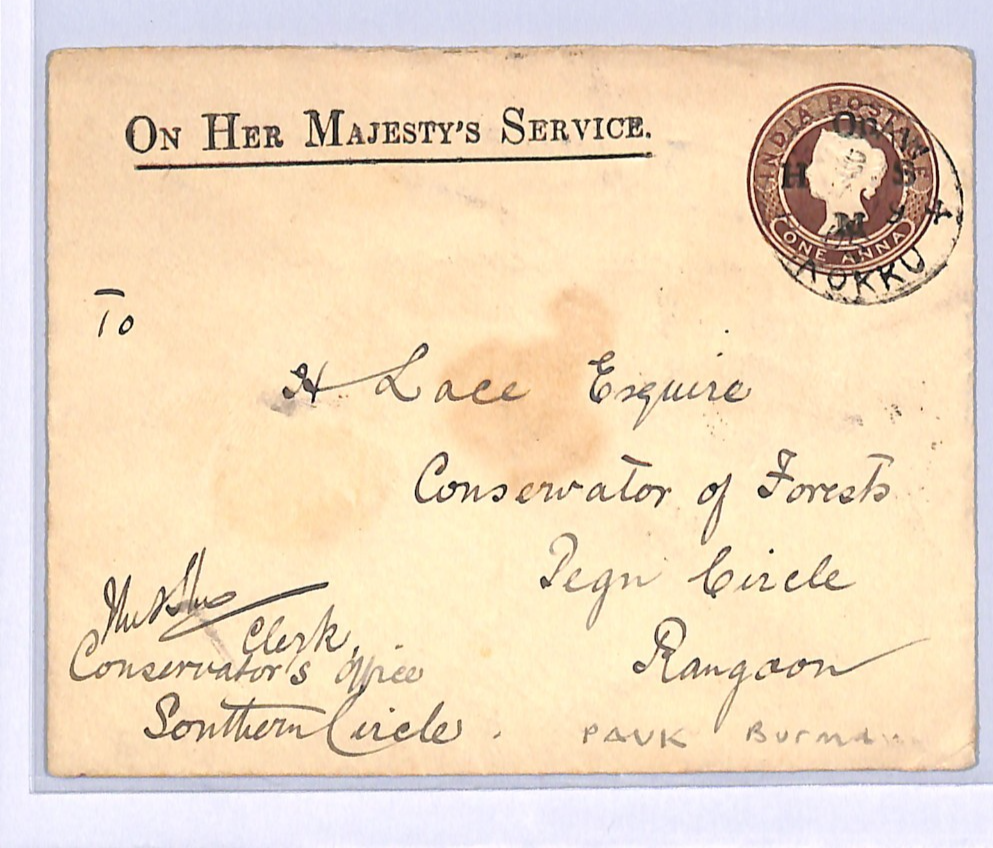 ON HER MAJESTY'S SERVICE.
INDIA POSTAGE
On
H S
M
ONE ANNA
AOKKU
To
H Lace Esquire
Conservator of Forests
Pegu Circle
Rangoon
Clerk,
Conservator's Office
Southern Circle.
PAUK Burma